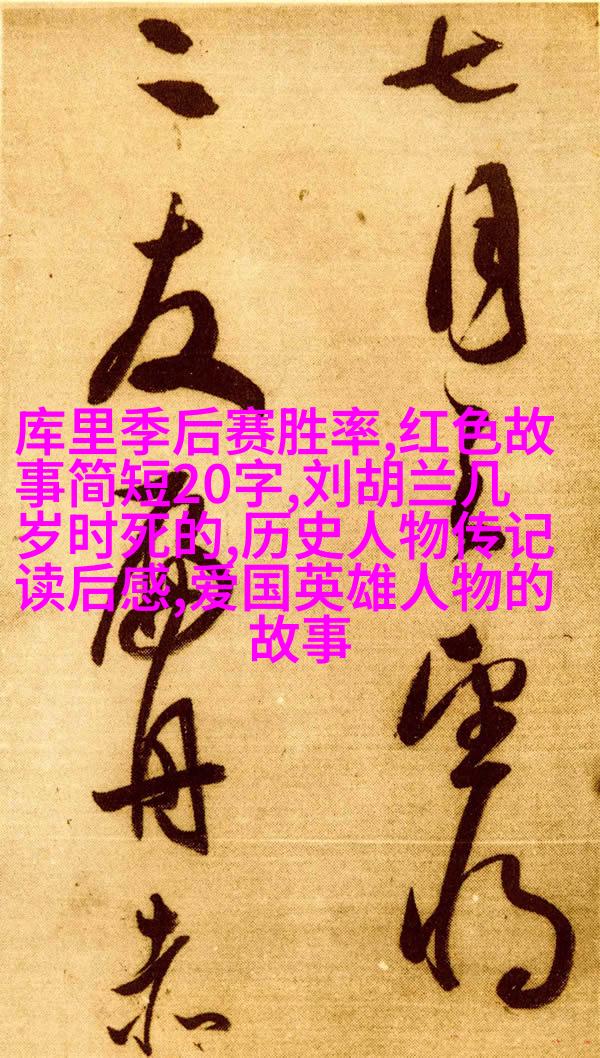 库里季后赛胜率,红色故
事简短20字,刘胡兰几
岁时死的,历史人物传记
读后感,爱国英雄人物的
故事
七月望将
二友舟赤